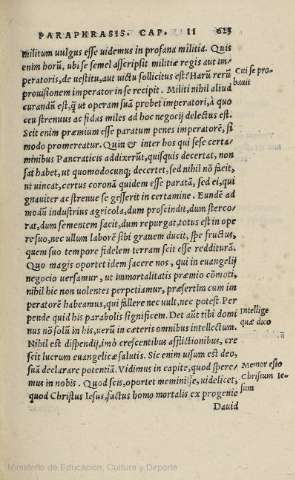 PARAPHRASIS. CAP. II 623
militum uulgus esse uidemus in profana militia. Quis
enim horũ, ubi se semel asscripsit militiæ regis aut im-
peratoris, de uestitu, aut uictu sollicitus est? Harũ rerũ
prouisionem imperator in se recipit. Militi nihil aliud
curandũ est, q̃ ut operam suã probet imperatori, à quo
ceu strenuus ac fidus miles ad hoc negocij delectus est.
Seit enim præmium esse paratum penes imperatorẽ, si
modo promereatur. Quin & inter hos qui sese certa-
minibus Pancraticis addixerũt, quisquis decertat, non
sat habet, ut quomodocunq; decertet, sed nihil nõ facit,
ni uincat, certus coronã quidem esse paratã, sed ei, qui
gnauiter ac strenue se gesserit in certamine. Eundẽ ad
modũ industrius agricola, dum proscindit, dum sterco-
rat, dum sementem facit, dum repurgat, totus est in ope
re suo, nec ullum laborẽ sibi grauem ducit, spe fructus,
quem suo tempore fidelem terram scit esse redditurã.
Quo magis oportet idem facere nos, qui in euangelij
negocio uersamur, ut immortalitatis præmio cõmoti,
nihil hic non uolentes perpetiamur, præsertim cum im
peratorẽ habeamus, qui fallere nec uult, nec potest. Per
pende quid his parabolis significem. Det aũt tibi domi
nus nõ solũ in his, uerũ in cæteris omnibus intellectum.
Nihil est dispendij, imò crescentibus afflictionibus, cre
scit lucrum euangelicæ salutis. Sic enim uisum est deo,
suã declarare potentiã. Vidimus in capite, quod spere-
mus in nobis. Quod scis, oportet meminisse, uidelicet,
quod Christus Iesus, factus homo mortalis ex progenie
Dauid
Cui se pro-
bauit
Intellige
quæ dico
Memor esto
Christum Ie-
sum
Ministerio de Educación, Cultura y Deporte